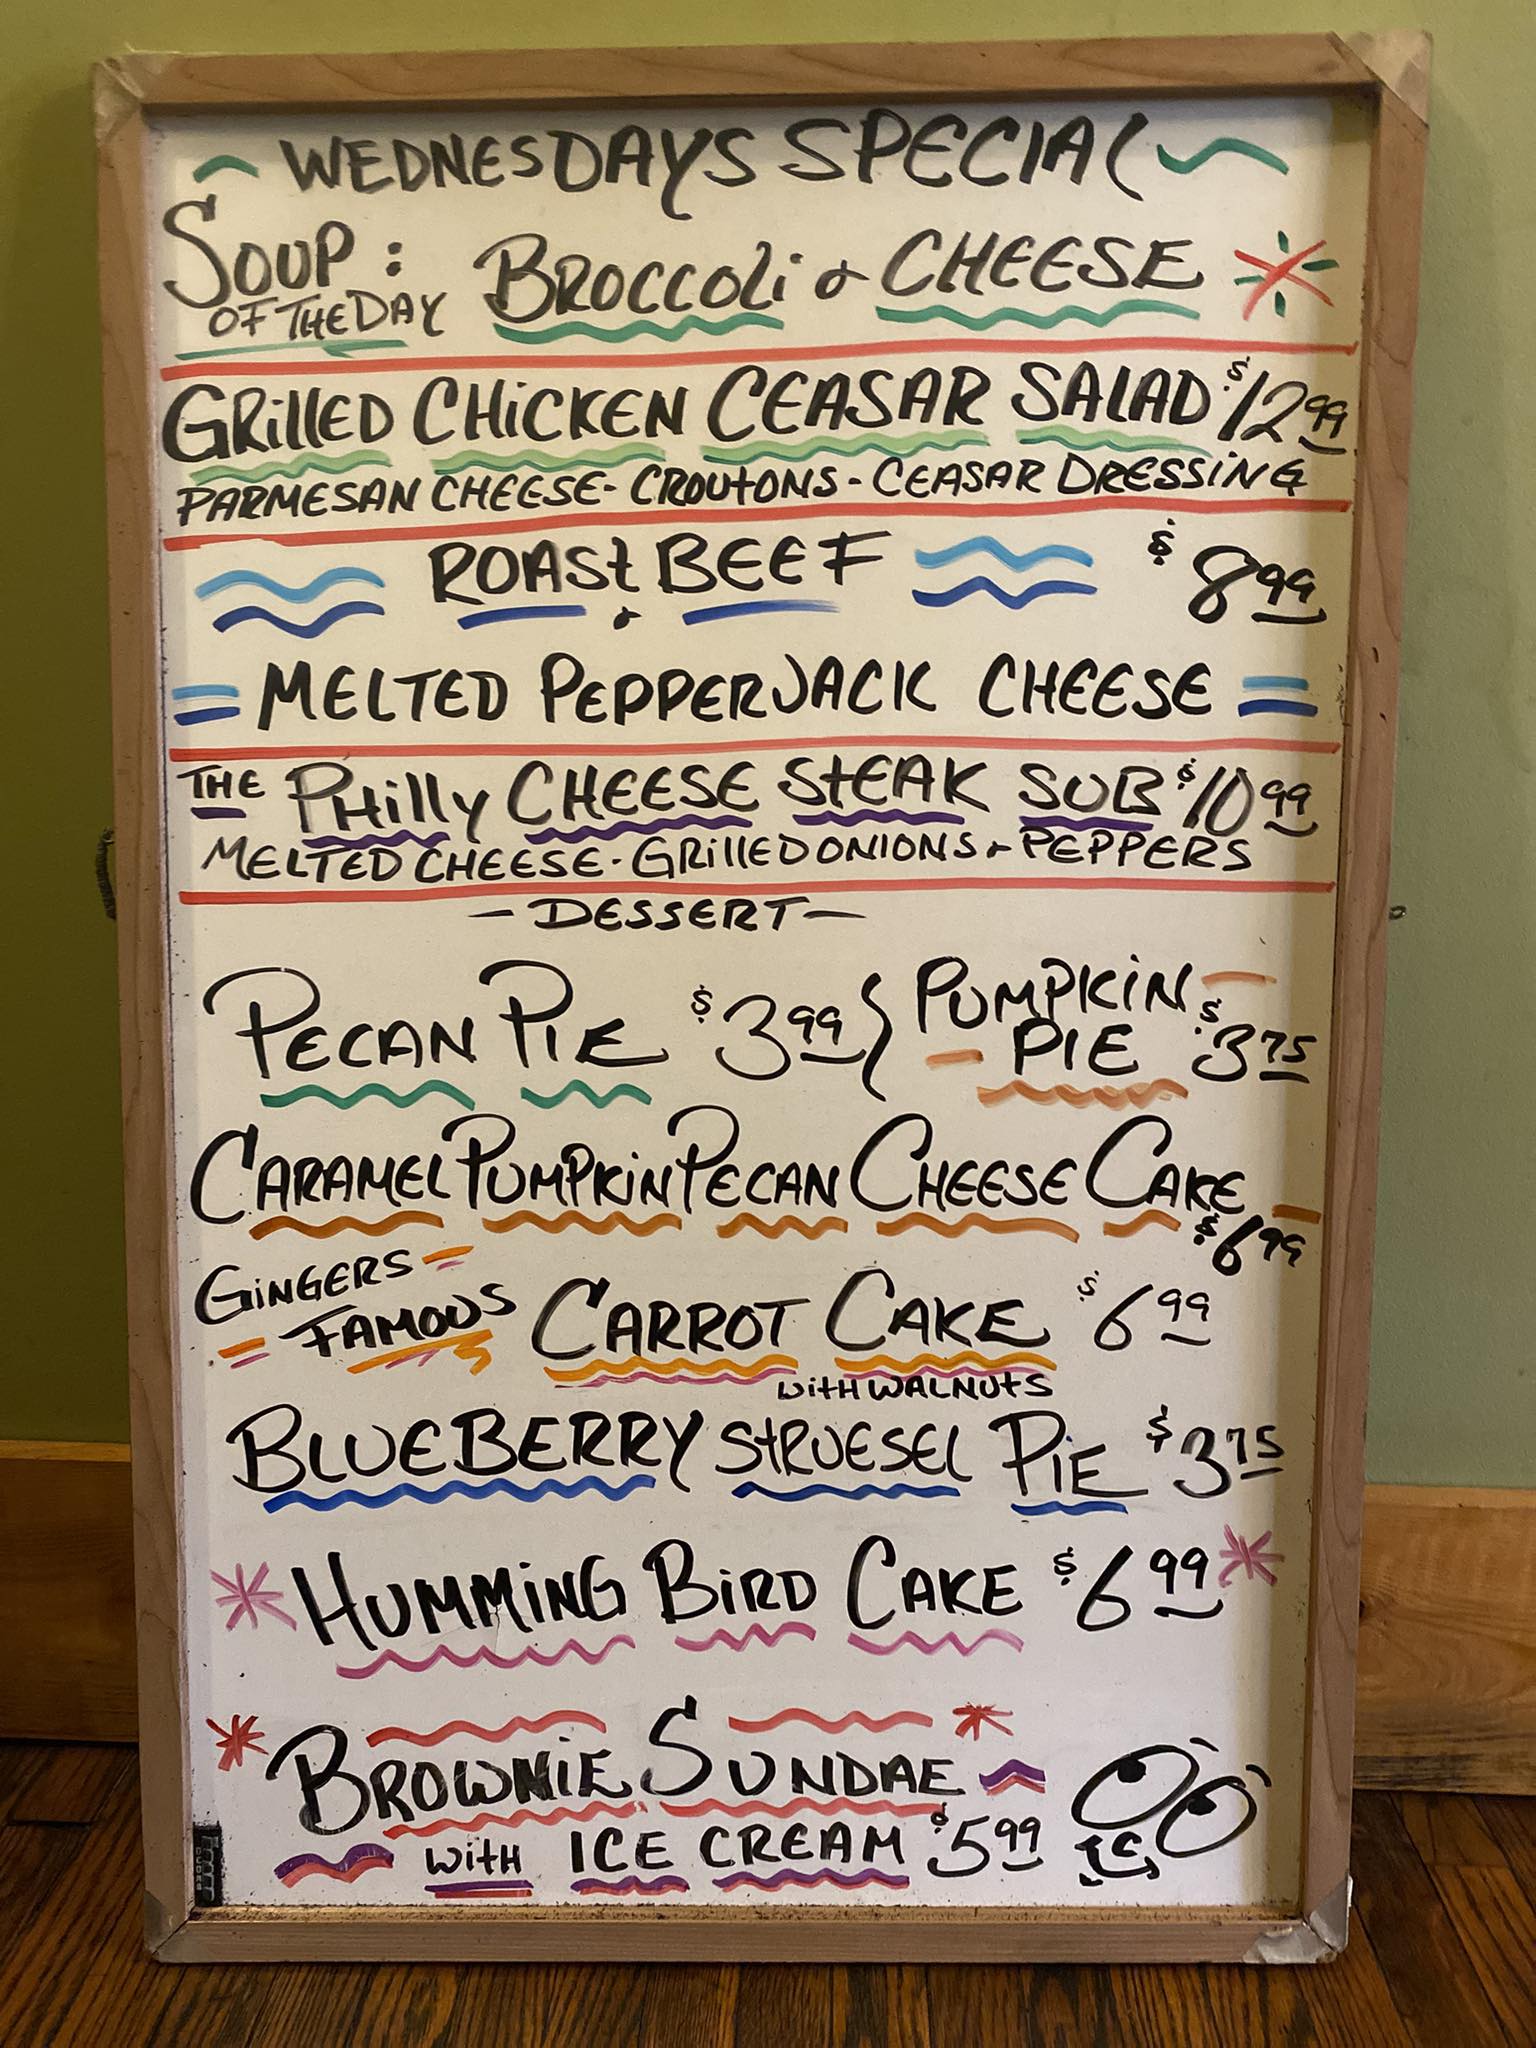 WEDNESDAYS SPECIAL
SOUP: BROCCOLi & CHEESE
OF THE DAY
GRiLLED CHiCKEN CEASAR SALAD $12.99
PARMESAN CHEESE - CROUtONS - CEASAR DRESSiNG
ROASt BEEF $8.99
&
MELTED PEPPERJACK CHEESE
THE PHilly CHEESE StEAK SUB $10.99
MELTED CHEESE - GRillED ONIONS & PEPPERS
- DESSERT -
PECAN PIE $3.99 } PUMPKiN PIE $3.75
CARAMEL PUMPKiN PECAN CHEESE CAKE $6.99
GiNGERS FAMOUS CARROT CAKE $6.99
WitH WALNUtS
BLUEBERRY StRUESEL PiE $3.75
HUMMiNG BiRD CAKE $6.99
BROWNiE SUNDAE
WitH ICE CREAM $5.99